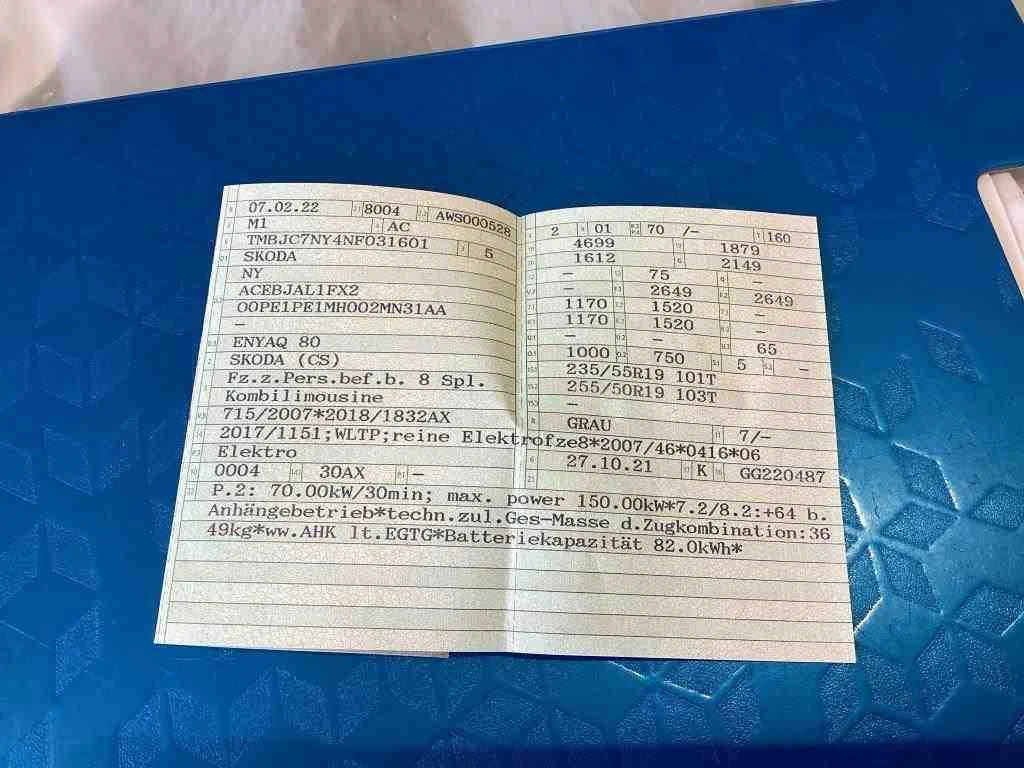 07.02.22 8004 AWS000528
M1 AC
TMBJC7NY4NF031601 5
SKODA
NY
ACEBJAL1FX2
00PE1PE1MH002MN31AA
–
ENYAQ 80
SKODA (CS)
Fz.z.Pers.bef.b. 8 Spl.
Kombilimousine
715/2007*2018/1832AX
2017/1151;WLTP;reine Elektrofze8*2007/46*0416*06
Elektro
0004 30AX –
2 01 70 /– 160
4699 1879
1612 2149
– 75 –
– 2649 2649
1170 1520 –
1170 1520 –
– – 65
1000 750 5 –
235/55R19 101T
255/50R19 103T
–
GRAU 7/–
27.10.21 K GG220487
P.2: 70.00kW/30min; max. power 150.00kw*7.2/8.2:+64 b.
Anhängebetrieb*techn.zul.Ges-Masse d.Zugkombination:36
49kg*ww.AHK lt.EGTG*Batteriekapazität 82.0kWh*